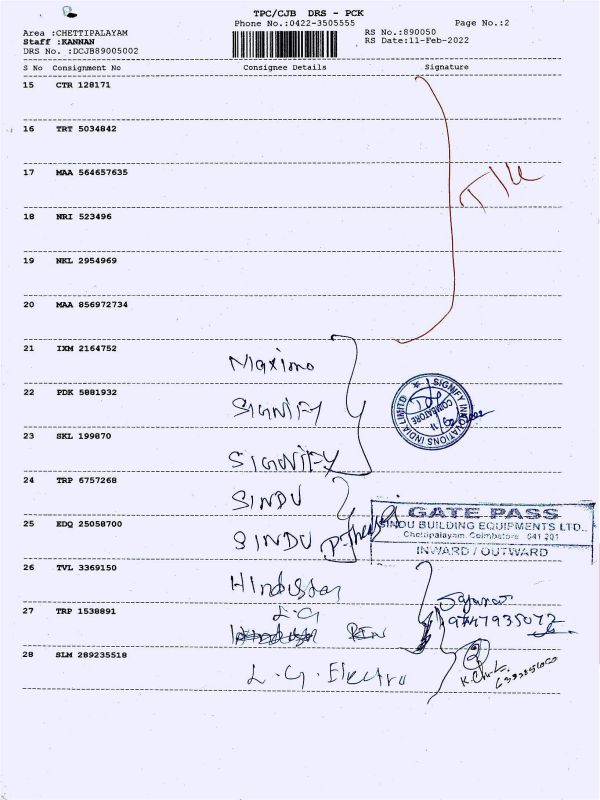 TPC/CJB DRS - PCK
Phone No.:0422-3505555
Page No.:2
Area :CHETTIPALAYAM
Staff :KANNAN
DRS No. :DCJB89005002
RS No.:890050
RS Date:11-Feb-2022
S No Consignment No Consignee Details Signature
15 CTR 128171
16 TRT 5034842
17 MAA 564657635
18 NRI 523496
19 NKL 2954969
20 MAA 856972734
21 IXM 2164752 Maximo
22 PDK 5881932 SIGNIFY
SIGNIFY INNOVATIONS INDIA LIMITED
COIMBATORE
23 SKL 199870 SIGNIFY
24 TRP 6757268 SINDU
25 EDQ 25058700 SINDU
GATE PASS
SINDU BUILDING EQUIPMENTS LTD.,
Chettipalayam, Coimbatore 641 201
INWARD / OUTWARD
26 TVL 3369150 Hindustan
27 TRP 1538891 L.G
28 SLM 289235518 L.G.Electro